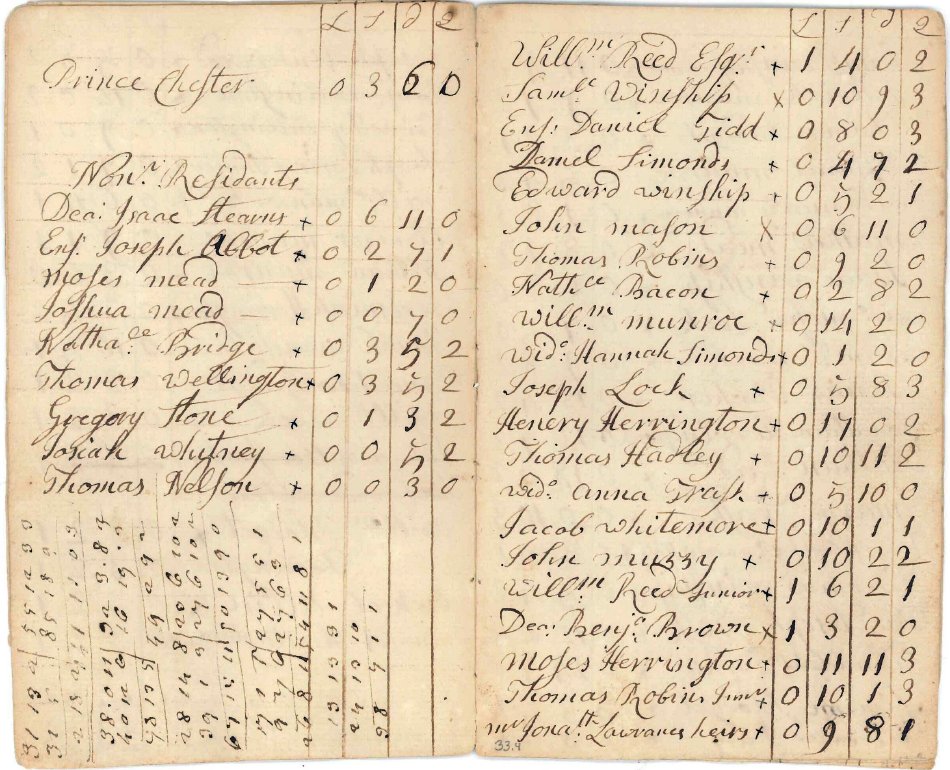 £ s d q
Prince Chester 0 3 6 0
Non.r Residants
Dea: Isaac Stearns + 0 6 11 0
Ens: Joseph Abbot + 0 2 7 1
Moses mead + 0 1 2 0
Joshua mead + 0 0 7 0
Natha.ll Bridge + 0 3 5 2
Thomas Wellington + 0 3 5 2
Gregory Stone + 0 1 3 2
Josiah Whitney + 0 0 5 2
Thomas Nelson + 0 0 3 0
£ s d q
Will.m Reed Esq.r + 1 4 0 2
Sam.ll Winship x 0 10 9 3
Ens: Daniel Tidd + 0 8 0 3
Daniel Simonds + 0 4 7 2
Edward winship + 0 5 2 1
John mason x 0 6 11 0
Thomas Robins + 0 9 2 0
Nath.ll Bacon + 0 2 8 2
Will.m munroe + 0 14 2 0
Wid.o Hannah Simonds + 0 1 2 0
Joseph Lock + 0 5 8 3
Henery Herrington + 0 17 0 2
Thomas Hadley + 0 10 11 2
Wid.o Anna Trask + 0 5 10 0
Jacob Whitemore + 0 10 1 1
John muzzy + 0 10 2 2
Will.m Reed Junior + 1 6 2 1
Dea: Benj.a Brown x 1 3 2 0
Moses Herrington + 0 11 11 3
Thomas Robins Junr + 0 10 1 3
mr Jona.th Lawrances heirs + 0 9 8 1
33.9